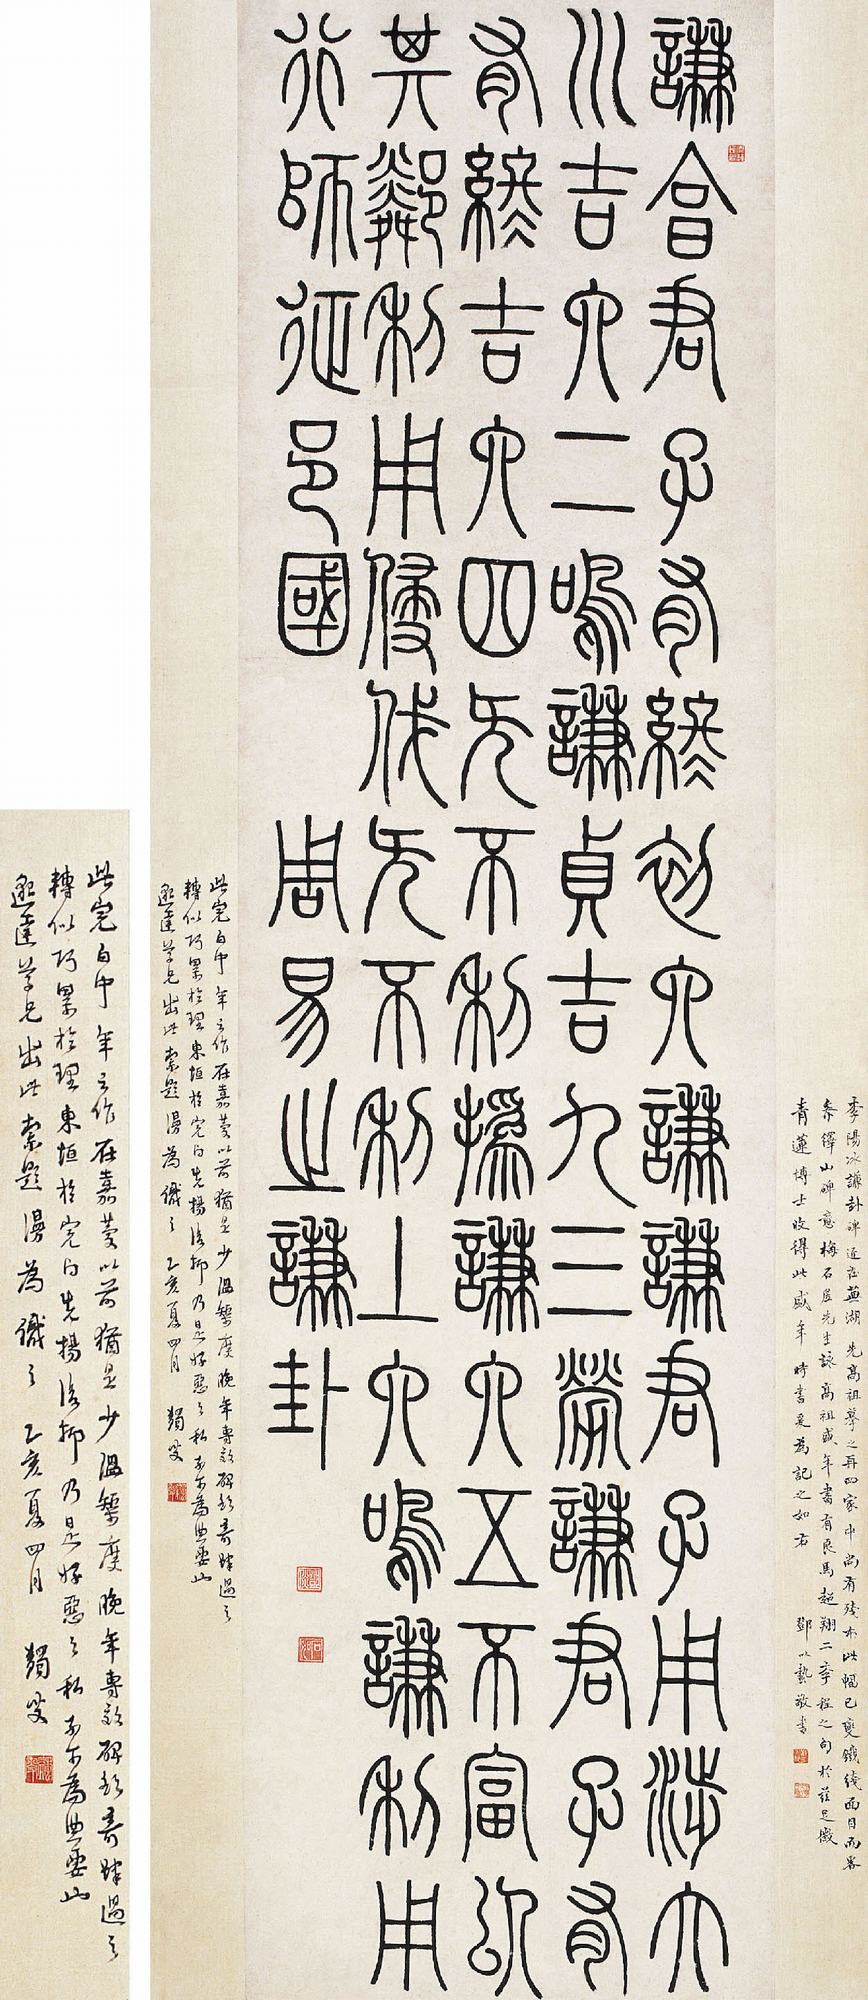 謙亨君子有終初六謙謙君子用涉大
川吉六二鳴謙貞吉九三勞謙君子有
有終吉六四无不利撝謙六五不富以
其鄰利用侵伐无不利上六鳴謙利用
行師征邑國 周易之謙卦
李陽冰謙卦碑近在蕪湖先高祖摹之再四家中尚有殘本此幅已變鐵綫面目而畧
泰嶧山碑意梅石居先生詠高祖盛年書有良馬超翔二章程之句於茲足徵
青蓮博士收得此盛年時書爰為記之如右 鄧以蟄敬書
此完白中年之作在嘉慶以前猶是少温榘度晚年專效碑額奇肆過之
轉似巧累於理東垣於完白先揚後抑乃是好惡之私為典要也
達学兄出此索題漫為識之 乙亥夏四月 獨叟
此完白中年之作在嘉慶以前猶是少温榘度晚年專效碑額奇肆過之
轉似巧累於理東垣於完白先揚後抑乃是好惡之私為典要也
達学兄出此索題漫為識之 乙亥夏四月 獨叟